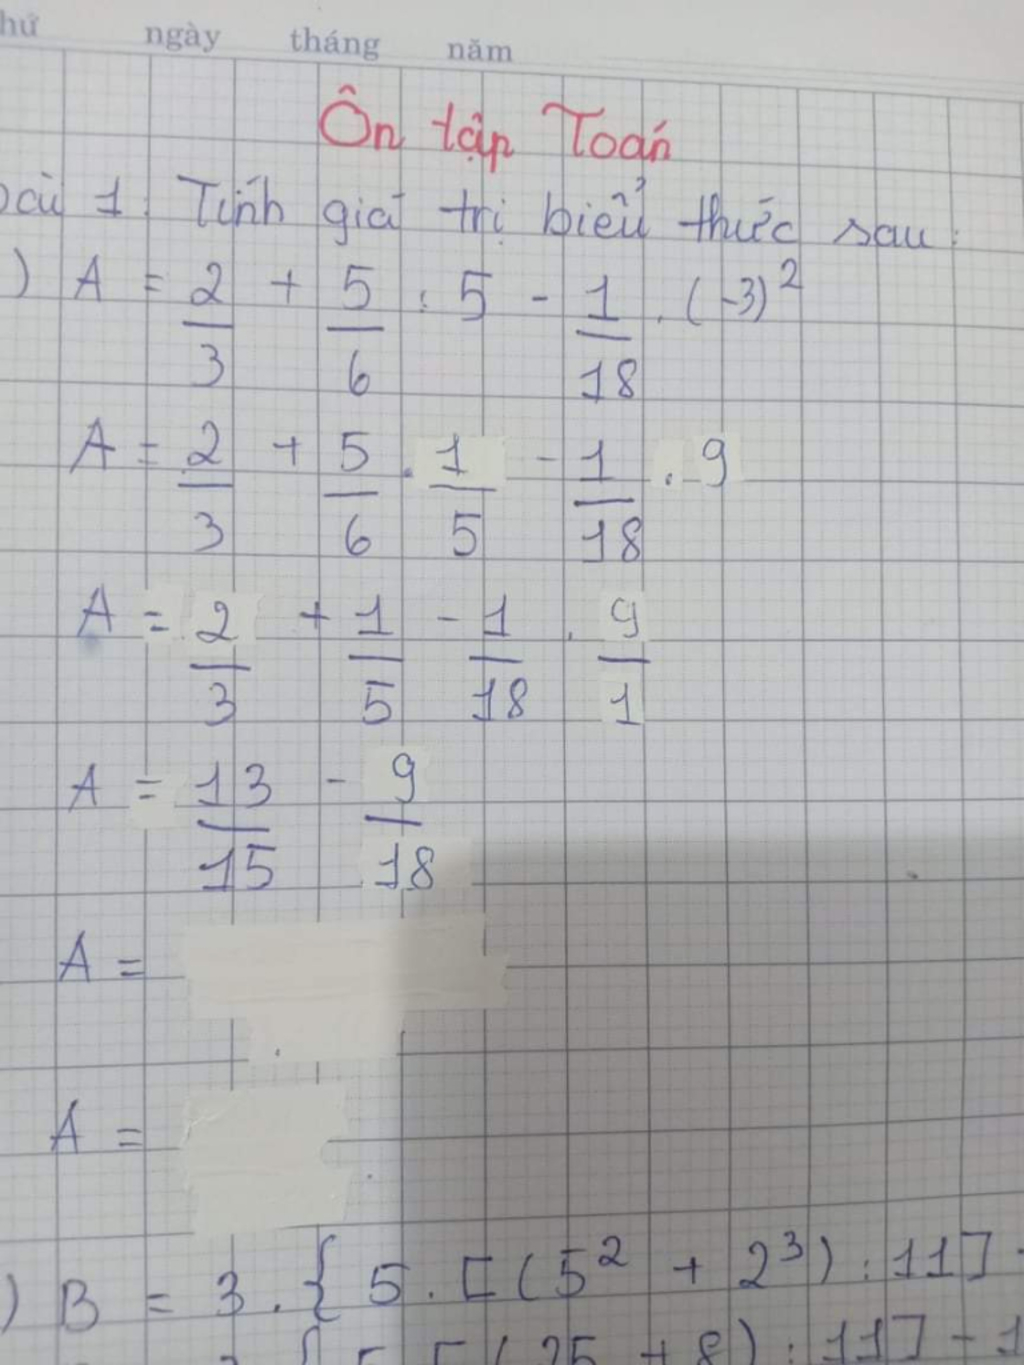 ngày tháng năm
Ôn tập Toán
bài 1: Tính giá trị biểu thức sau:
) A = 2/3 + 5/6 : 5 - 1/18 . (-3)²
A = 2/3 + 5/6 . 1/5 - 1/18 . 9
A = 2/3 + 1/5 - 1/18 . 9/1
A = 13/15 - 9/18
A =
A =
) B = 3 . { 5 . [ ( 5² + 2³ ) : 11 ] -
{ 5 [ ( 25 + 8 ) : 11 ] - 1